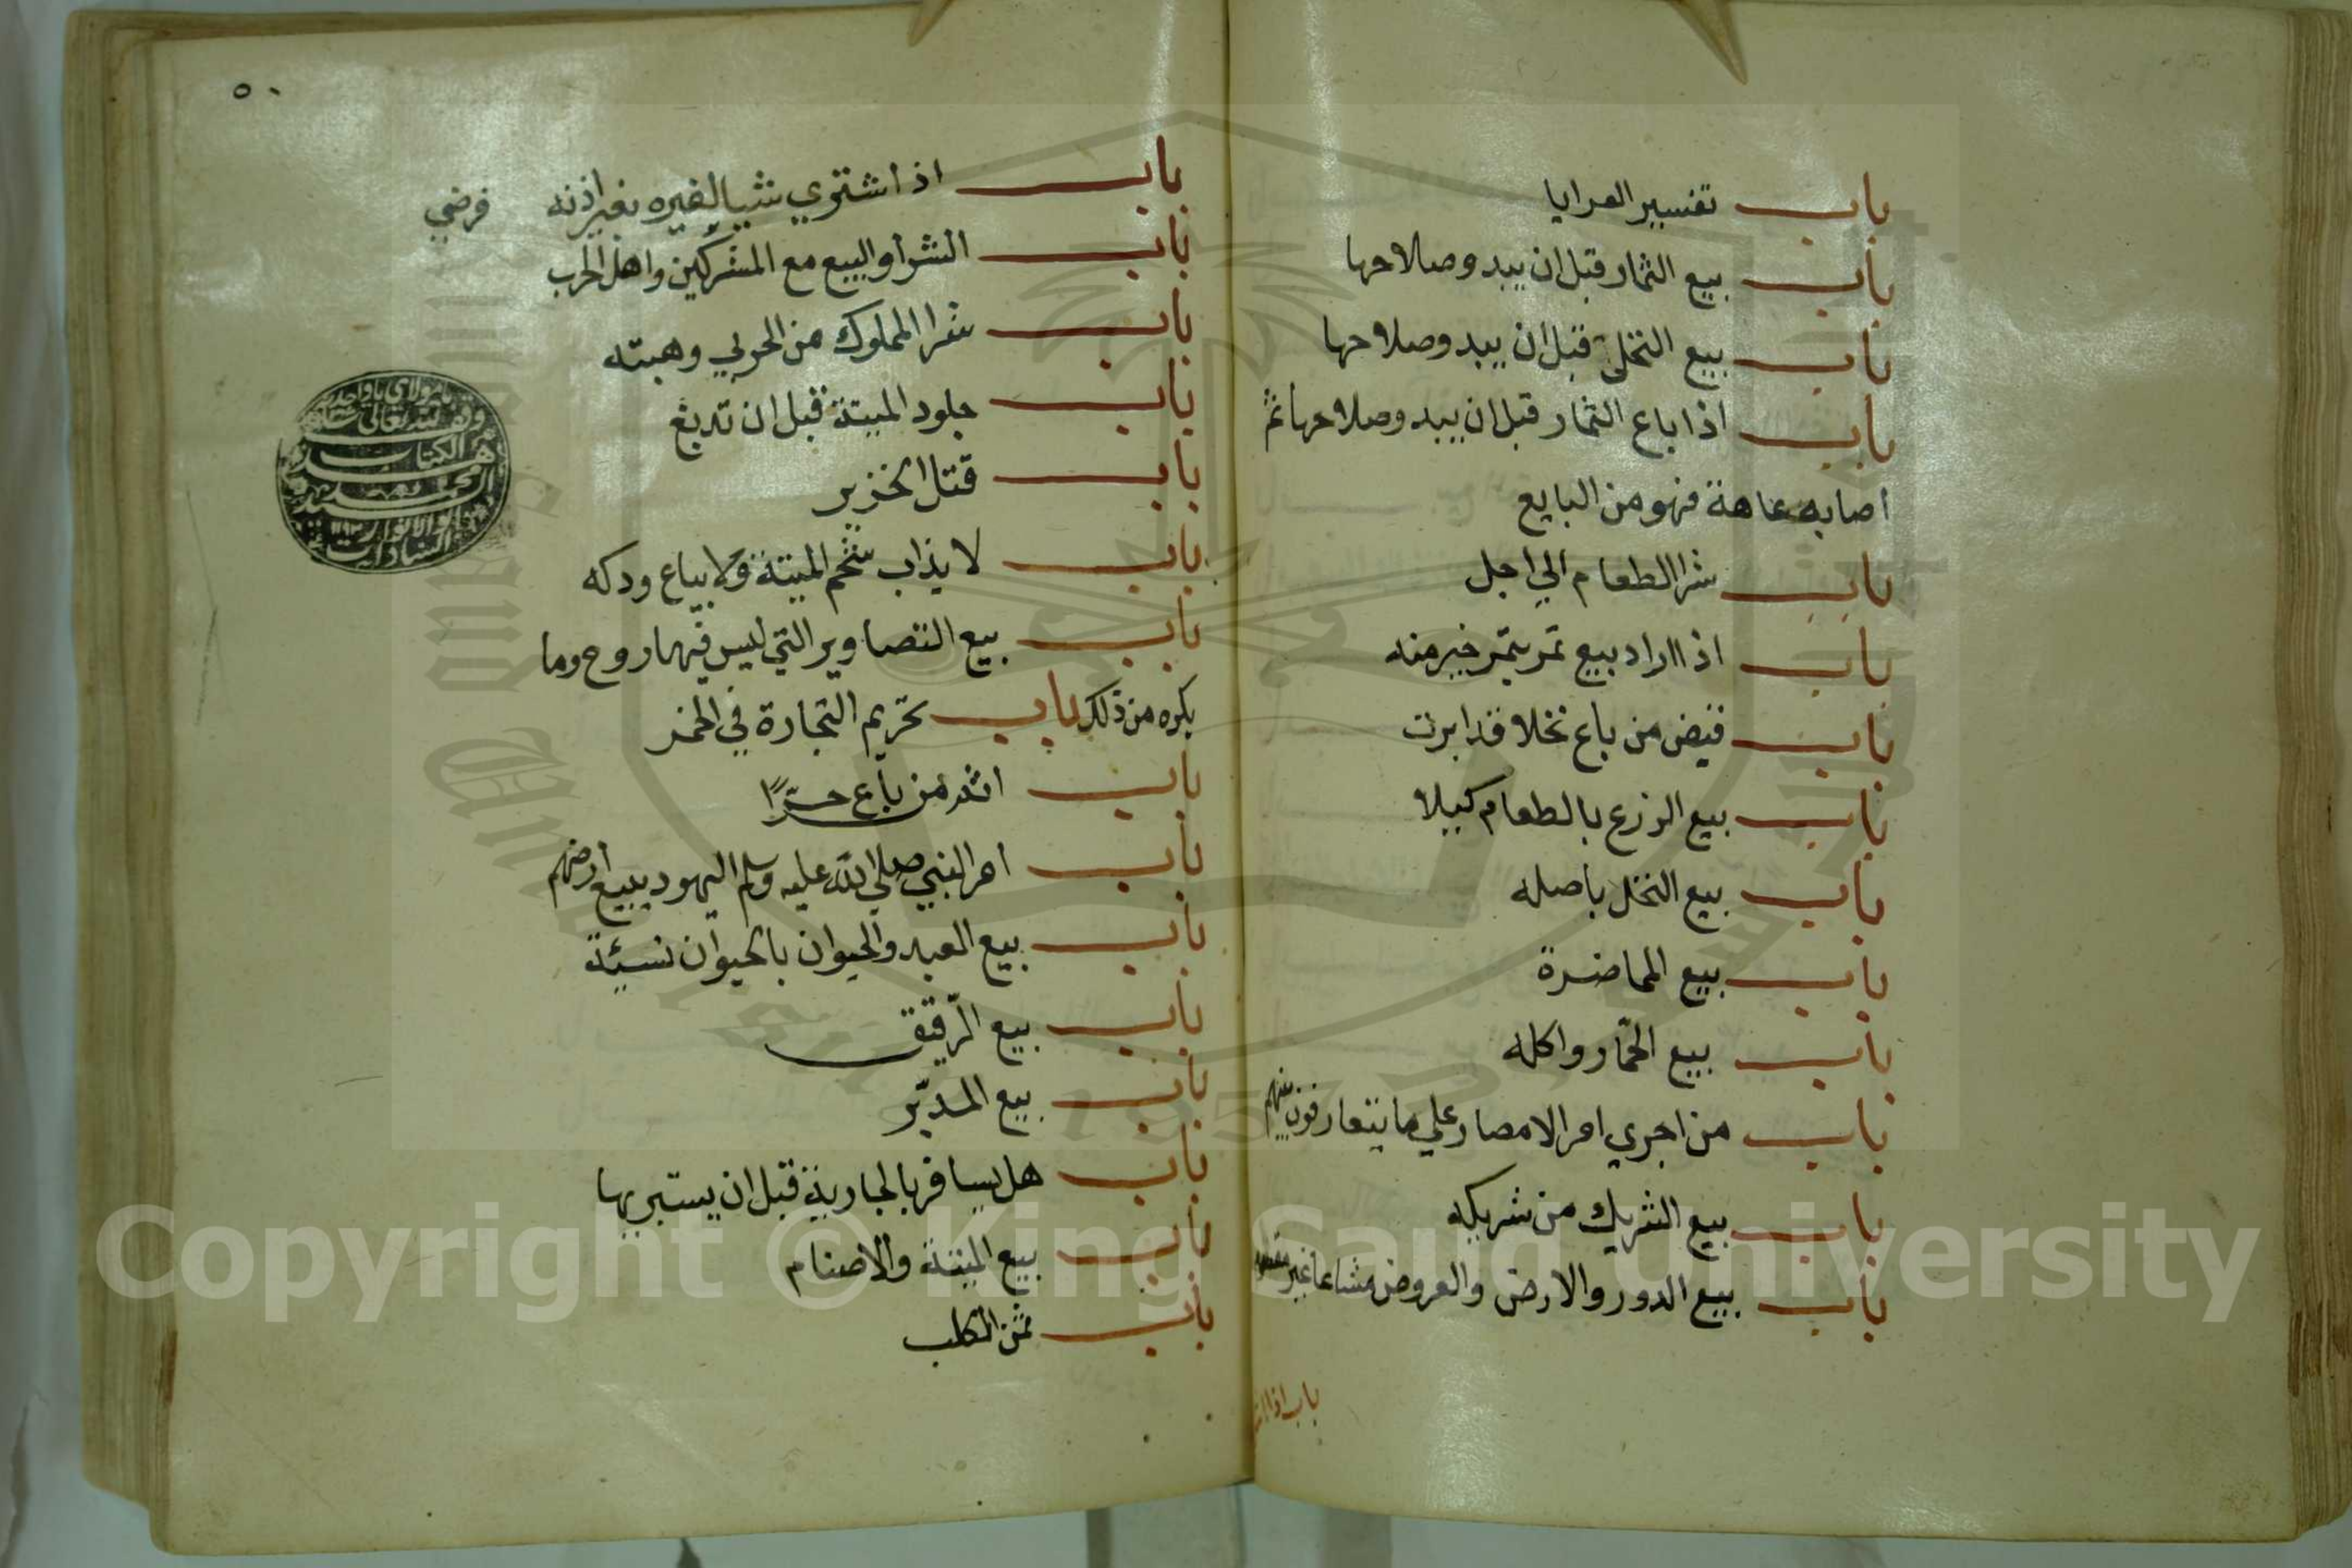 باب تفسير العرايا
باب بيع الثمار قبل ان يبدو صلاحها
باب بيع النخل قبل ان يبدو صلاحها
باب اذا باع الثمار قبل ان يبدو صلاحها ثم
اصابه عاهة فهو من البايع
باب شرا الطعام الي اجل
باب اذا اراد بيع تمر بتمر خير منه
باب قبض من باع نخلا قد ابرت
باب بيع الزرع بالطعام كيلا
باب بيع النخل باصله
باب بيع المخاضرة
باب بيع الجمار واكله
باب من اجري امر الامصار علي ما يتعارفون بينهم
باب بيع الشريك من شريكه
باب بيع الدور والارض والعروض مشاعا غير مقسوم
باب اذا
٥٠
باب اذا اشتري شيا لغيره بغير اذنه فرضي
باب الشرا والبيع مع المشركين واهل الحرب
باب شرا المملوك من الحربي وهبته
باب جلود الميتة قبل ان تدبغ
باب قتل الخنزير
باب لا يذاب شحم الميتة ولا يباع ودكه
باب بيع التصاوير التي ليس فيها روح وما
يكره من ذلك باب تحريم التجارة في الخمر
باب اثم من باع حرًا
باب امر النبي صلي الله عليه وسلم اليهود ببيع أرضهم
باب بيع العبد والحيوان بالحيوان نسيئة
باب بيع الرّقيق
باب بيع المدبّر
باب هل يسافر بالجارية قبل ان يستبريها
باب بيع الميتة والاصنام
باب ثمن الكلب
وقف لله تعالى
الكتاب
السادات
Copyright © King Saud University